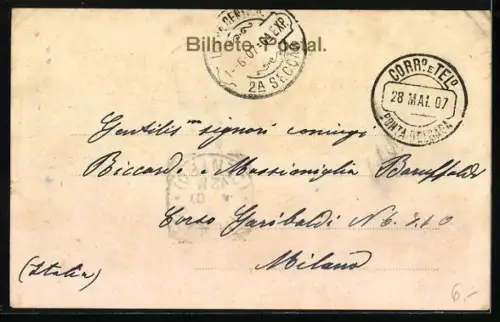 Bilhete Postal.
1-6.07
2A SECCÃO
CORRº E TELº
28 MAI. 07
PONTA DELGADA
Gentilis.mi signori coniugi
Riccardo e Massimiglia Baruffaldi
Corso Garibaldi N.
Milano
(Italia)
6,-